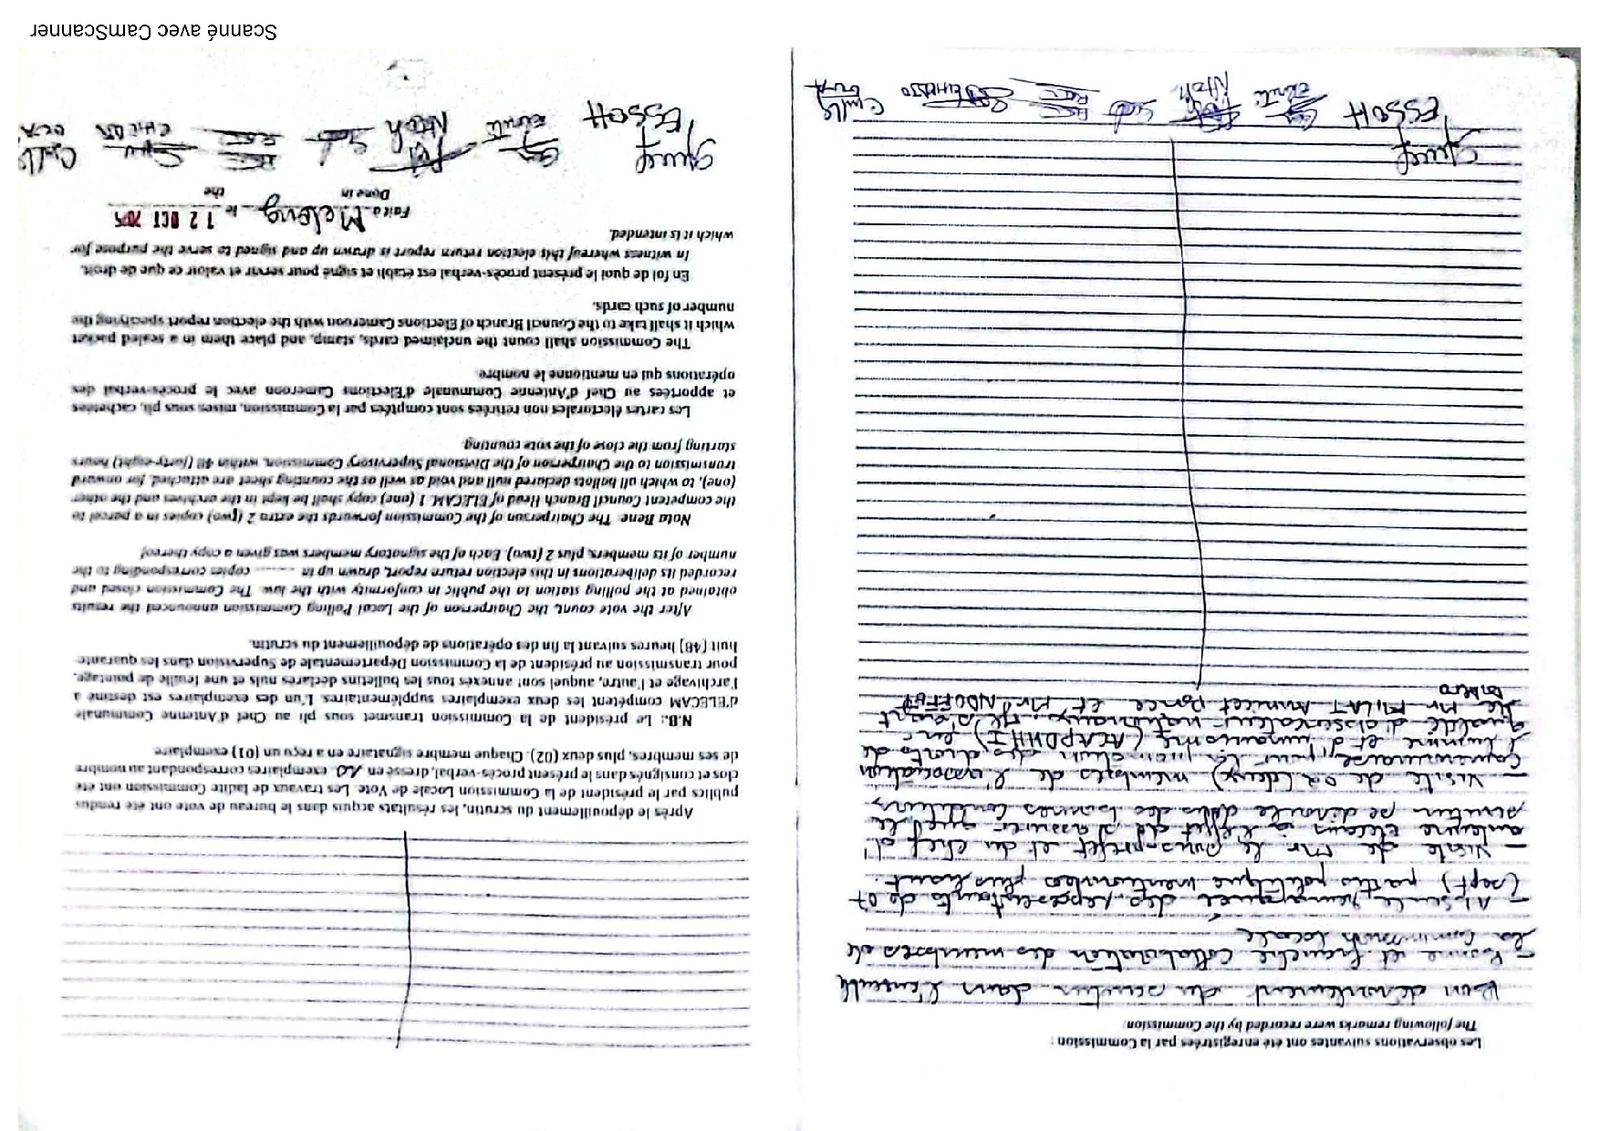 Les observations suivantes ont été enregistrées par la Commission :
The following remarks were recorded by the Commission:
Bon déroulement du scrutin dans l'ensemble
- Bonne et franche collaboration des membres de
la Commission Locale
- Absence remarquée des représentants de 07
(sept) partis politique mentionnées plus haut.
- Visite de Mr le Sous-préfet et du chef d'
antenne Elecam à l'effet de s'assurer que le
scrutin se déroule dans des bonnes conditions
- Visite de 02 (deux) membres de l'association
Camerounaise pour la des droits de
l'homme et d'humanisme (ACAPDHHI) en
qualité d'observateurs nationaux
de Mr MILAT Annicet Ponce et Mr
ESSOH
Ntoh
Après le dépouillement du scrutin, les résultats acquis dans le bureau de vote ont été rendus
publics par le président de la Commission Locale de Vote. Les travaux de ladite Commission ont été
clos et consignés dans le présent procès-verbal, dressé en 10 exemplaires correspondant au nombre
de ses membres, plus deux (02). Chaque membre signataire en a reçu un (01) exemplaire
N.B.: Le président de la Commission transmet sous pli au Chef d'Antenne Communale
d'ELECAM compétent les deux exemplaires supplémentaires. L'un des exemplaires est destiné à
l'archivage et l'autre, auquel sont annexés tous les bulletins déclarés nuls et une feuille de pointage,
pour transmission au président de la Commission Départementale de Supervision dans les quarante-
huit [48] heures suivant la fin des opérations de dépouillement du scrutin.
After the vote count, the Chairperson of the Local Polling Commission announced the results
obtained at the polling station to the public in conformity with the law. The Commission closed and
recorded its deliberations in this election return report, drawn up in ........ copies corresponding to the
number of its members, plus 2 (two). Each of the signatory members was given a copy thereof
Nota Bene: The Chairperson of the Commission forwards the extra 2 (two) copies in a parcel to
the competent Council Branch Head of ELECAM. 1 (one) copy shall be kept in the archives and the other
(one), to which all ballots declared null and void as well as the counting sheet are attached, for onward
transmission to the Chairperson of the Divisional Supervisory Commission, within 48 (forty-eight) hours
starting from the close of the vote counting.
Les cartes électorales non retirées sont comptées par la Commission, mises sous pli, cachetées
et apportées au Chef d'Antenne Communale d'Elections Cameroon avec le procès-verbal des
opérations qui en mentionne le nombre.
The Commission shall count the unclaimed cards, stamp, and place them in a sealed packet
which it shall take to the Council Branch of Elections Cameroon with the election report specifying the
number of such cards.
En foi de quoi le présent procès-verbal est établi et signé pour servir et valoir ce que de droit.
In witness whereof this election return report is drawn up and signed to serve the purpose for
which it is intended.
Fait à Meleng le 12 OCT 2025
Done in the
ESSOH
Ntoh
Scanné avec CamScanner